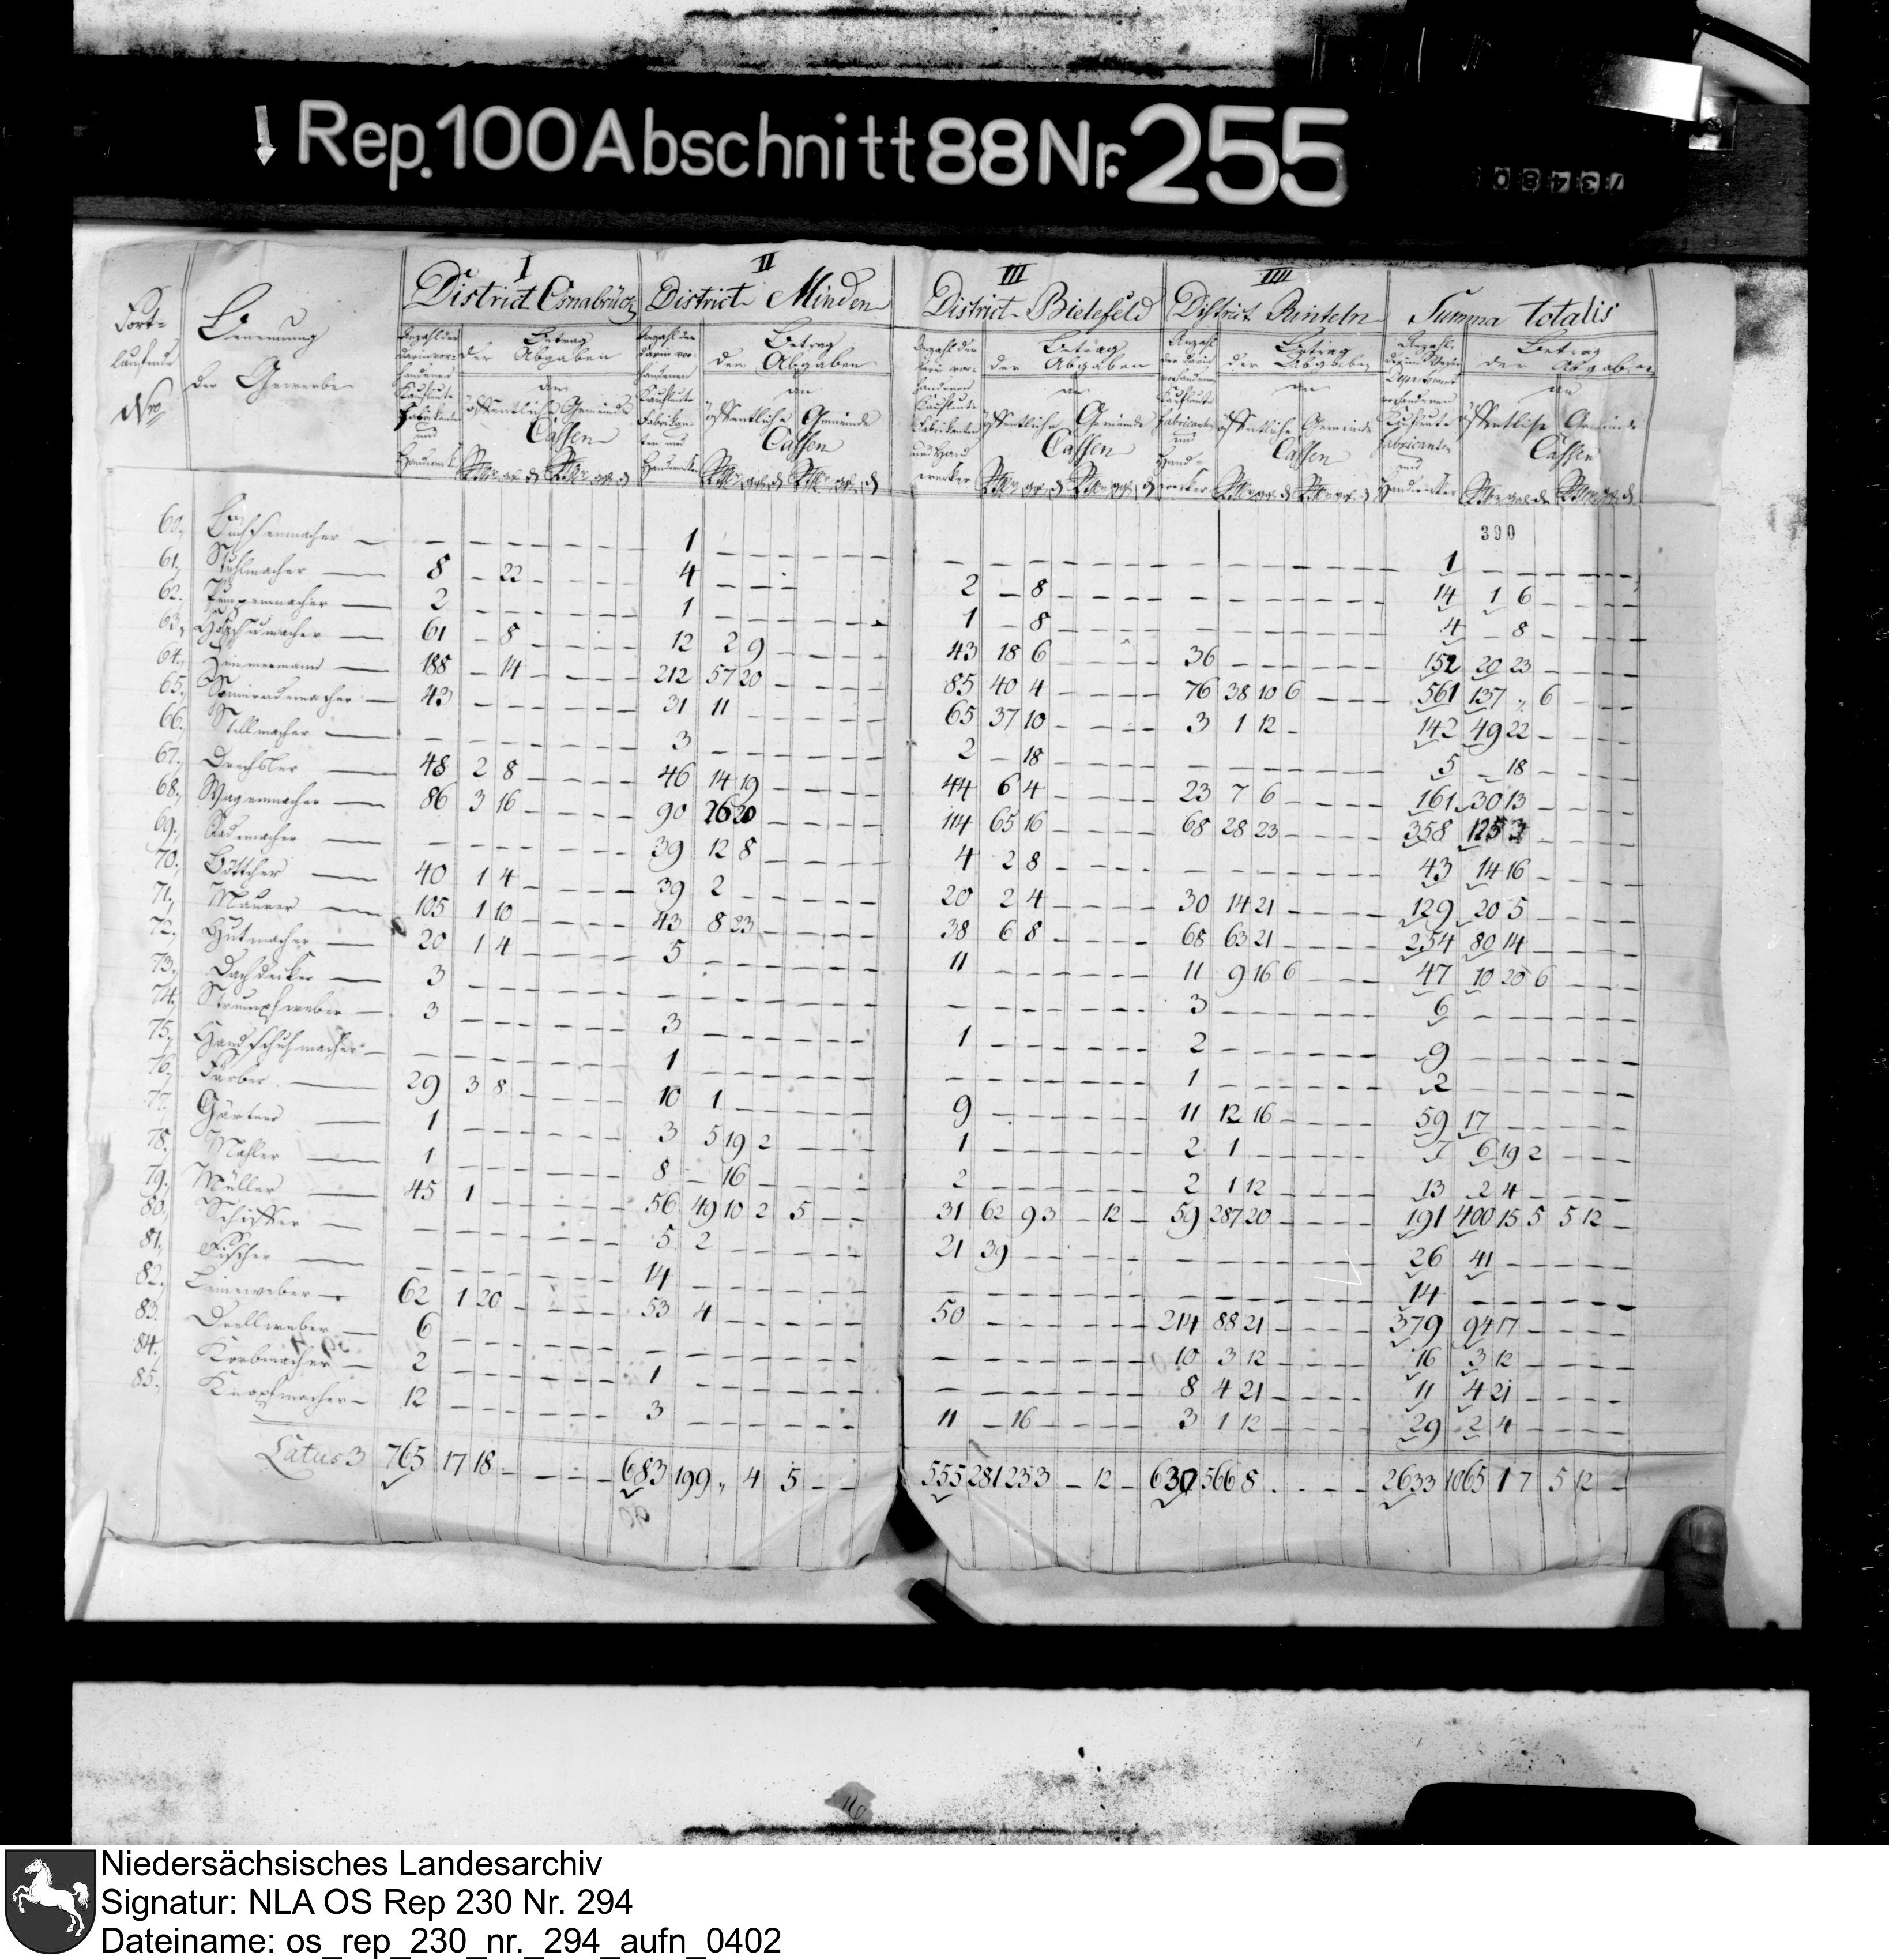 Rep. 100 Abschnitt 88 Nr. 255
Fort-
laufende
Nro.
Benennung
der Gewerbe
I
District Osnabrück
II
District Minden
III
District Bielefeld
IIII
District Rinteln
Summa totalis
Betrag
der Abgaben
an
öffentliche Gemeinde
Cassen
Betrag
der Abgaben
an
öffentliche Gemeinde
Cassen
Betrag
der Abgaben
an
öffentliche Gemeinde
Cassen
Betrag
der Abgaben
an
öffentliche Gemeinde
Cassen
Betrag
der Abgaben
an
öffentliche Gemeinde
Cassen
390
60. Büchsenmacher — 1 — 1
61. Stuhlmacher 8 - 22 - 4 - 2 - 8 - 14 1 6
62. Pumpenmacher 2 - 1 - 1 - 8 - 4 - 8
63. Holzschumacher 61 - 8 - 12 2 9 - 43 18 6 - 36 - 152 20 23
64. Zimmermann 188 - 14 - 212 57 20 - 85 40 4 - 76 38 10 6 - 561 137 „ 6
65. Spinrademacher 43 - 31 11 - 65 37 10 - 3 1 12 - 142 49 22
66. Stellmacher - 3 - 2 - 18 - 5 - 18
67. Drechsler 48 2 8 - 46 14 19 - 44 6 4 - 23 7 6 - 161 30 13
68. Wagenmacher 86 3 16 - 90 26 20 - 114 65 16 - 68 28 23 - 358 125 3
69. Rademacher - 39 12 8 - 4 2 8 - 43 14 16
70. Böttcher 40 1 4 - 39 2 - 20 2 4 - 30 14 21 - 129 20 5
71. Maurer 105 1 10 - 43 8 23 - 38 6 8 - 68 63 21 - 254 80 14
72. Hutmacher 20 1 4 - 5 - 11 - 11 9 16 6 - 47 10 20 6
73. Dachdecker 3 - 3 - 6
74. Strumpfweber 3 - 3 - 1 - 2 - 9
75. Handschuhmacher - 1 - 1 - 2
76. Färber 29 3 8 - 10 1 - 9 - 11 12 16 - 59 17
77. Gärtner 1 - 3 5 19 2 - 1 - 2 1 - 7 6 19 2
78. Mahler 1 - 8 - 16 - 2 - 2 1 12 - 13 2 4
79. Müller 45 1 - 56 49 10 2 5 - 31 62 9 3 - 12 - 59 287 20 - 191 400 15 5 5 12 -
80. Schiffer - 5 2 - 21 39 - 26 41
81. Fischer - 14 - 14
82. Leineweber 62 1 20 - 53 4 - 50 - 214 88 21 - 379 94 17
83. Drellweber 6 - 10 3 12 - 16 3 12
84. Korbmacher 2 - 1 - 8 4 21 - 11 4 21
85. Knopfmacher 12 - 3 - 11 - 16 - 3 1 12 - 29 2 4
Latus 3 765 17 18 - 683 199 „ 4 5 - 555 281 23 3 - 12 - 630 566 8 - 2633 1065 1 7 5 12 -
Niedersächsisches Landesarchiv
Signatur: NLA OS Rep 230 Nr. 294
Dateiname: os_rep_230_nr._294_aufn_0402